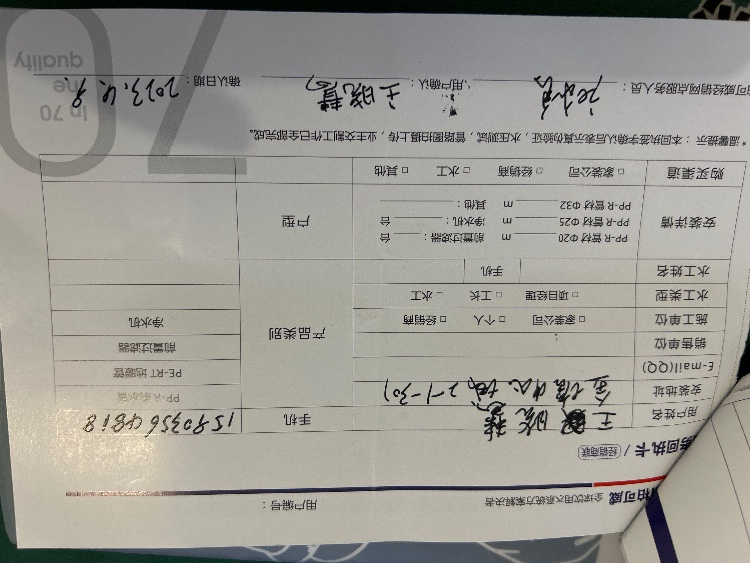 柏可威 全球饮用水系统方案解决者
用户编号：
务回执卡 / 经销商联
用户姓名 王晓慧 手机 15803564818
安装地址
E-mail(QQ)
销售单位
施工单位 □ 家装公司 □ 个人 □ 经销商
水工类型 □ 项目经理 □ 工长 □ 水工
水工姓名 手机
产品类别
PP-R 给水管
PE-RT 地暖管
前置过滤器
净水机
安装详情
PP-R 管材 Φ20 m 前置过滤器： 台
PP-R 管材 Φ25 m 净水机： 台
PP-R 管材 Φ32 m 其他：
户型
购买渠道 □ 家装公司 □ 经销商 □ 水工 □ 其他
*温馨提示：本回执签字确认后表示真伪验证，水压测试，管路图拍摄上传，业主交割工作已全部完成。
柏可威经销网点服务人员： 用户确认： 王晓慧 确认日期： 2023.4.9.
In 70
he
quality
70